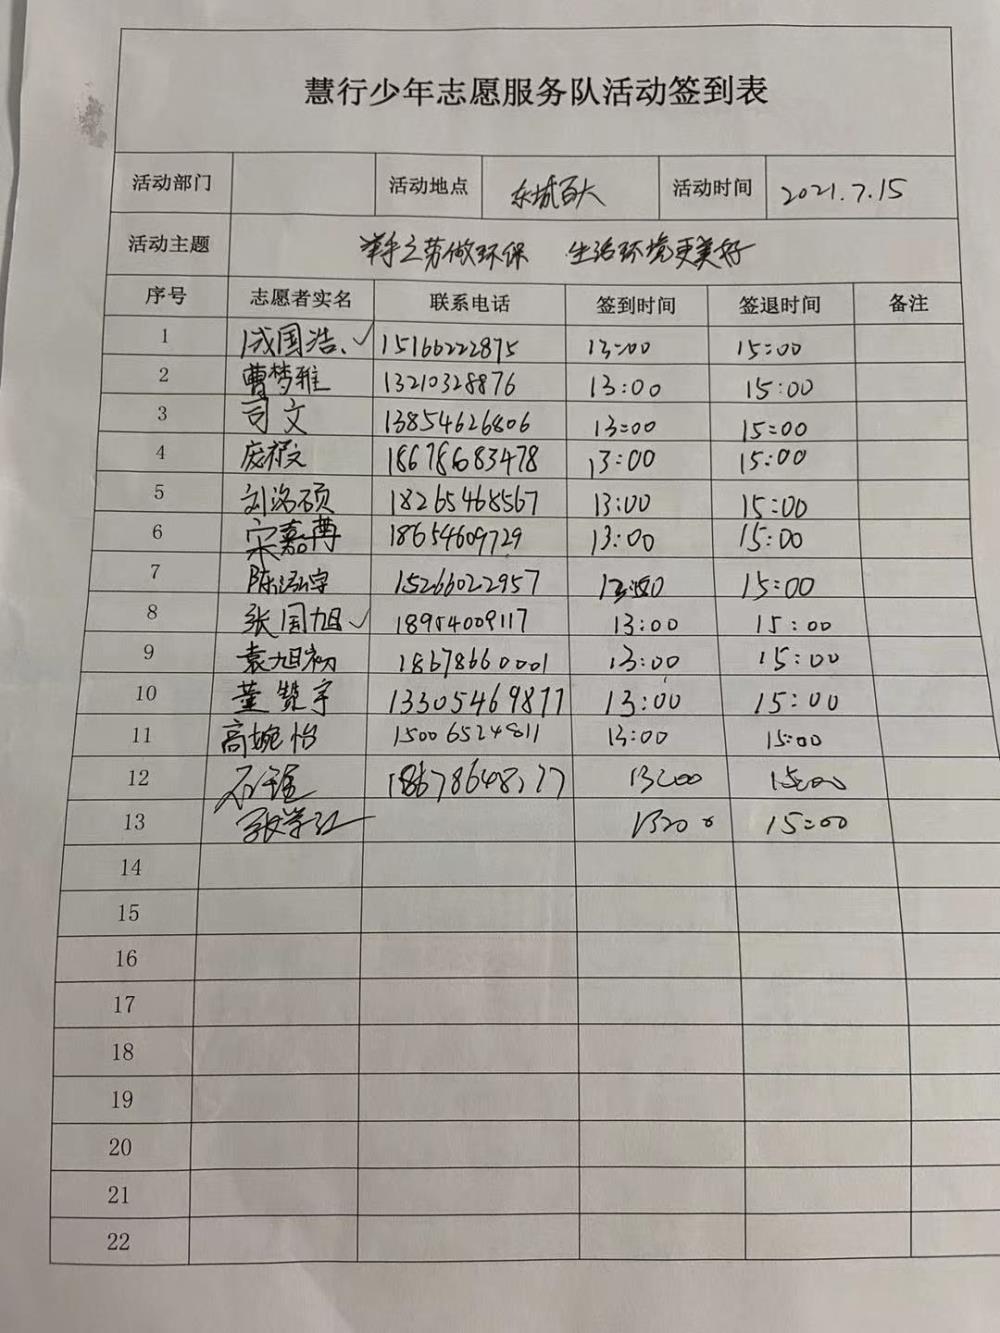 慧行少年志愿服务队活动签到表
活动部门 活动地点 东城百大 活动时间 2021.7.15
活动主题 举手之劳做环保 生活环境更美好
序号 志愿者实名 联系电话 签到时间 签退时间 备注
1 成国浩、✓ 15166222875 13:00 15:00
2 曹梦雅 13210328876 13:00 15:00
3 司文 13854626806 13:00 15:00
4 庞禄文 18678683478 13:00 15:00
5 刘洺硕 18265468567 13:00 15:00
6 宋嘉苒 18654609729 13:00 15:00
7 陈泓宇 15266022957 13:00 15:00
8 张国旭✓ 18954009117 13:00 15:00
9 袁旭初 18678660001 13:00 15:00
10 董赞宇 13305469877 13:00 15:00
11 高婉怡 15006524811 13:00 15:00
12 13:00 15:00
13 张学红 15:00
14
15
16
17
18
19
20
21
22